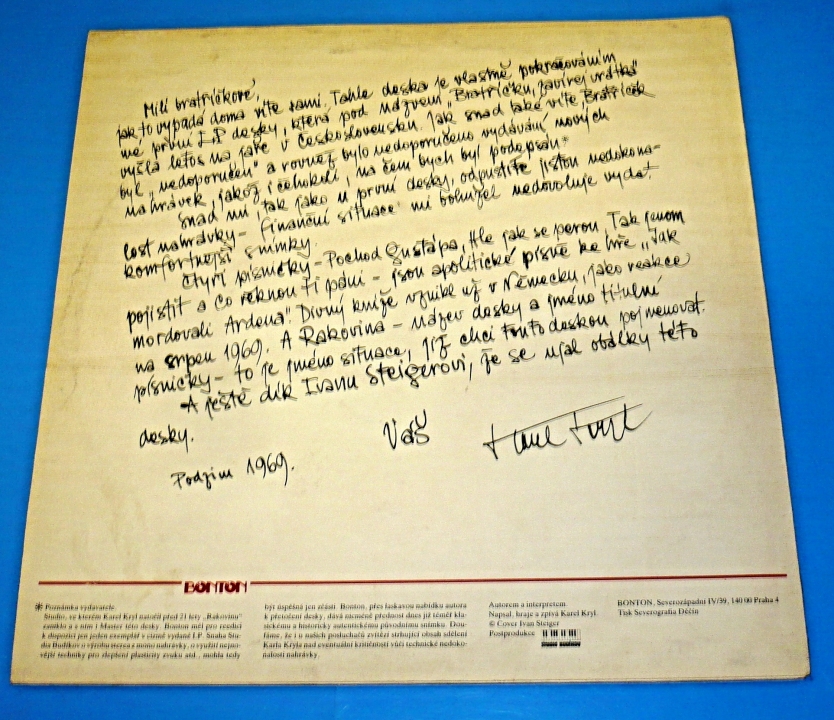 Milí bratříčkové,
jak to vypadá doma víte sami. Tahle deska je vlastně pokračováním
mé první LP desky, která pod názvem „Bratříčku, zavírej vrátka"
vyšla letos na jaře v Československu. Jak snad také víte, Bratříček
byl „nedoporučen" a rovněž bylo nedoporučeno vydávání nových
nahrávek, jakož i čehokoli, na čem bych byl podepsán*
Snad mi, tak jako u první desky, odpustíte jistou nedokona-
lost nahrávky – finanční situace mi bohužel nedovoluje vydat
komfortnější snímky.
Čtyři písničky – Pochod Gustapa, Hle jak se perou, Tak jenom
pojistit a Co řeknou tři páni – jsou apolitické písně ke hře „Jak
mordovali Ardena". Divný kníže vznikl už v Německu, jako reakce
na srpen 1969. A Rakovina – název desky a jméno titulní
písničky – to je jméno situace, jíž chci touto deskou pojmenovat.
A ještě dík Ivanu Steigerovi, že se ujal obálky této
desky.
Váš Karel Kryl
Podzim 1969.
BONTON
* Poznámka vydavatele
Studio, ve kterém Karel Kryl natočil před 21 lety „Rakovinu"
zaniklo a s ním i Master této desky. Bonton měl pro reedici
k dispozici jen jeden exemplář v cizině vydané LP. Snaha Stu-
dia Budíkov o výrobu stereo z mono nahrávky, o využití nejno-
vější techniky pro zlepšení plasticity zvuku atd., mohla tedy
být úspěšná jen zčásti. Bonton, přes laskavou nabídku autora
k přetočení desky, dává nicméně přednost dnes již téměř kla-
sickému a historicky autentickému původnímu snímku. Dou-
fáme, že i u našich posluchačů zvítězí strhující obsah sdělení
Karla Kryla nad eventuální kritičností vůči technické nedoko-
nalosti nahrávky.
Autorem a interpretem
Napsal, hraje a zpívá Karel Kryl.
© Cover Ivan Steiger
Postprodukce
BONTON, Severozápadní IV/39, 140 00 Praha 4
Tisk Severografia Děčín